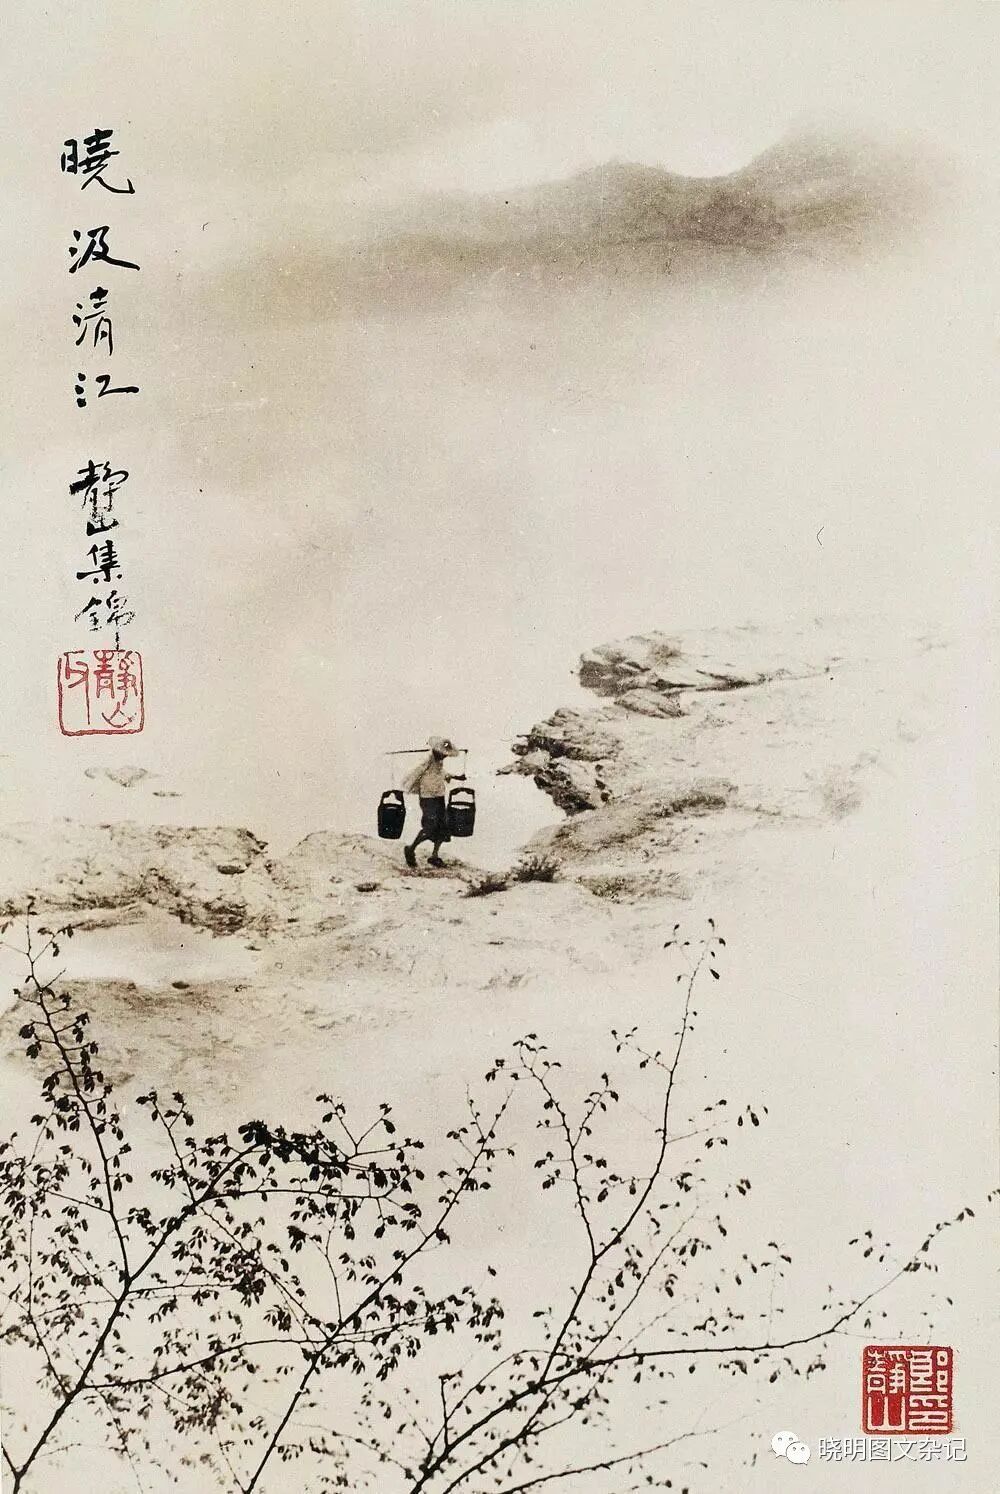 曉汲清江
靜山集錦
靜山
郎靜山印
晓明图文杂记